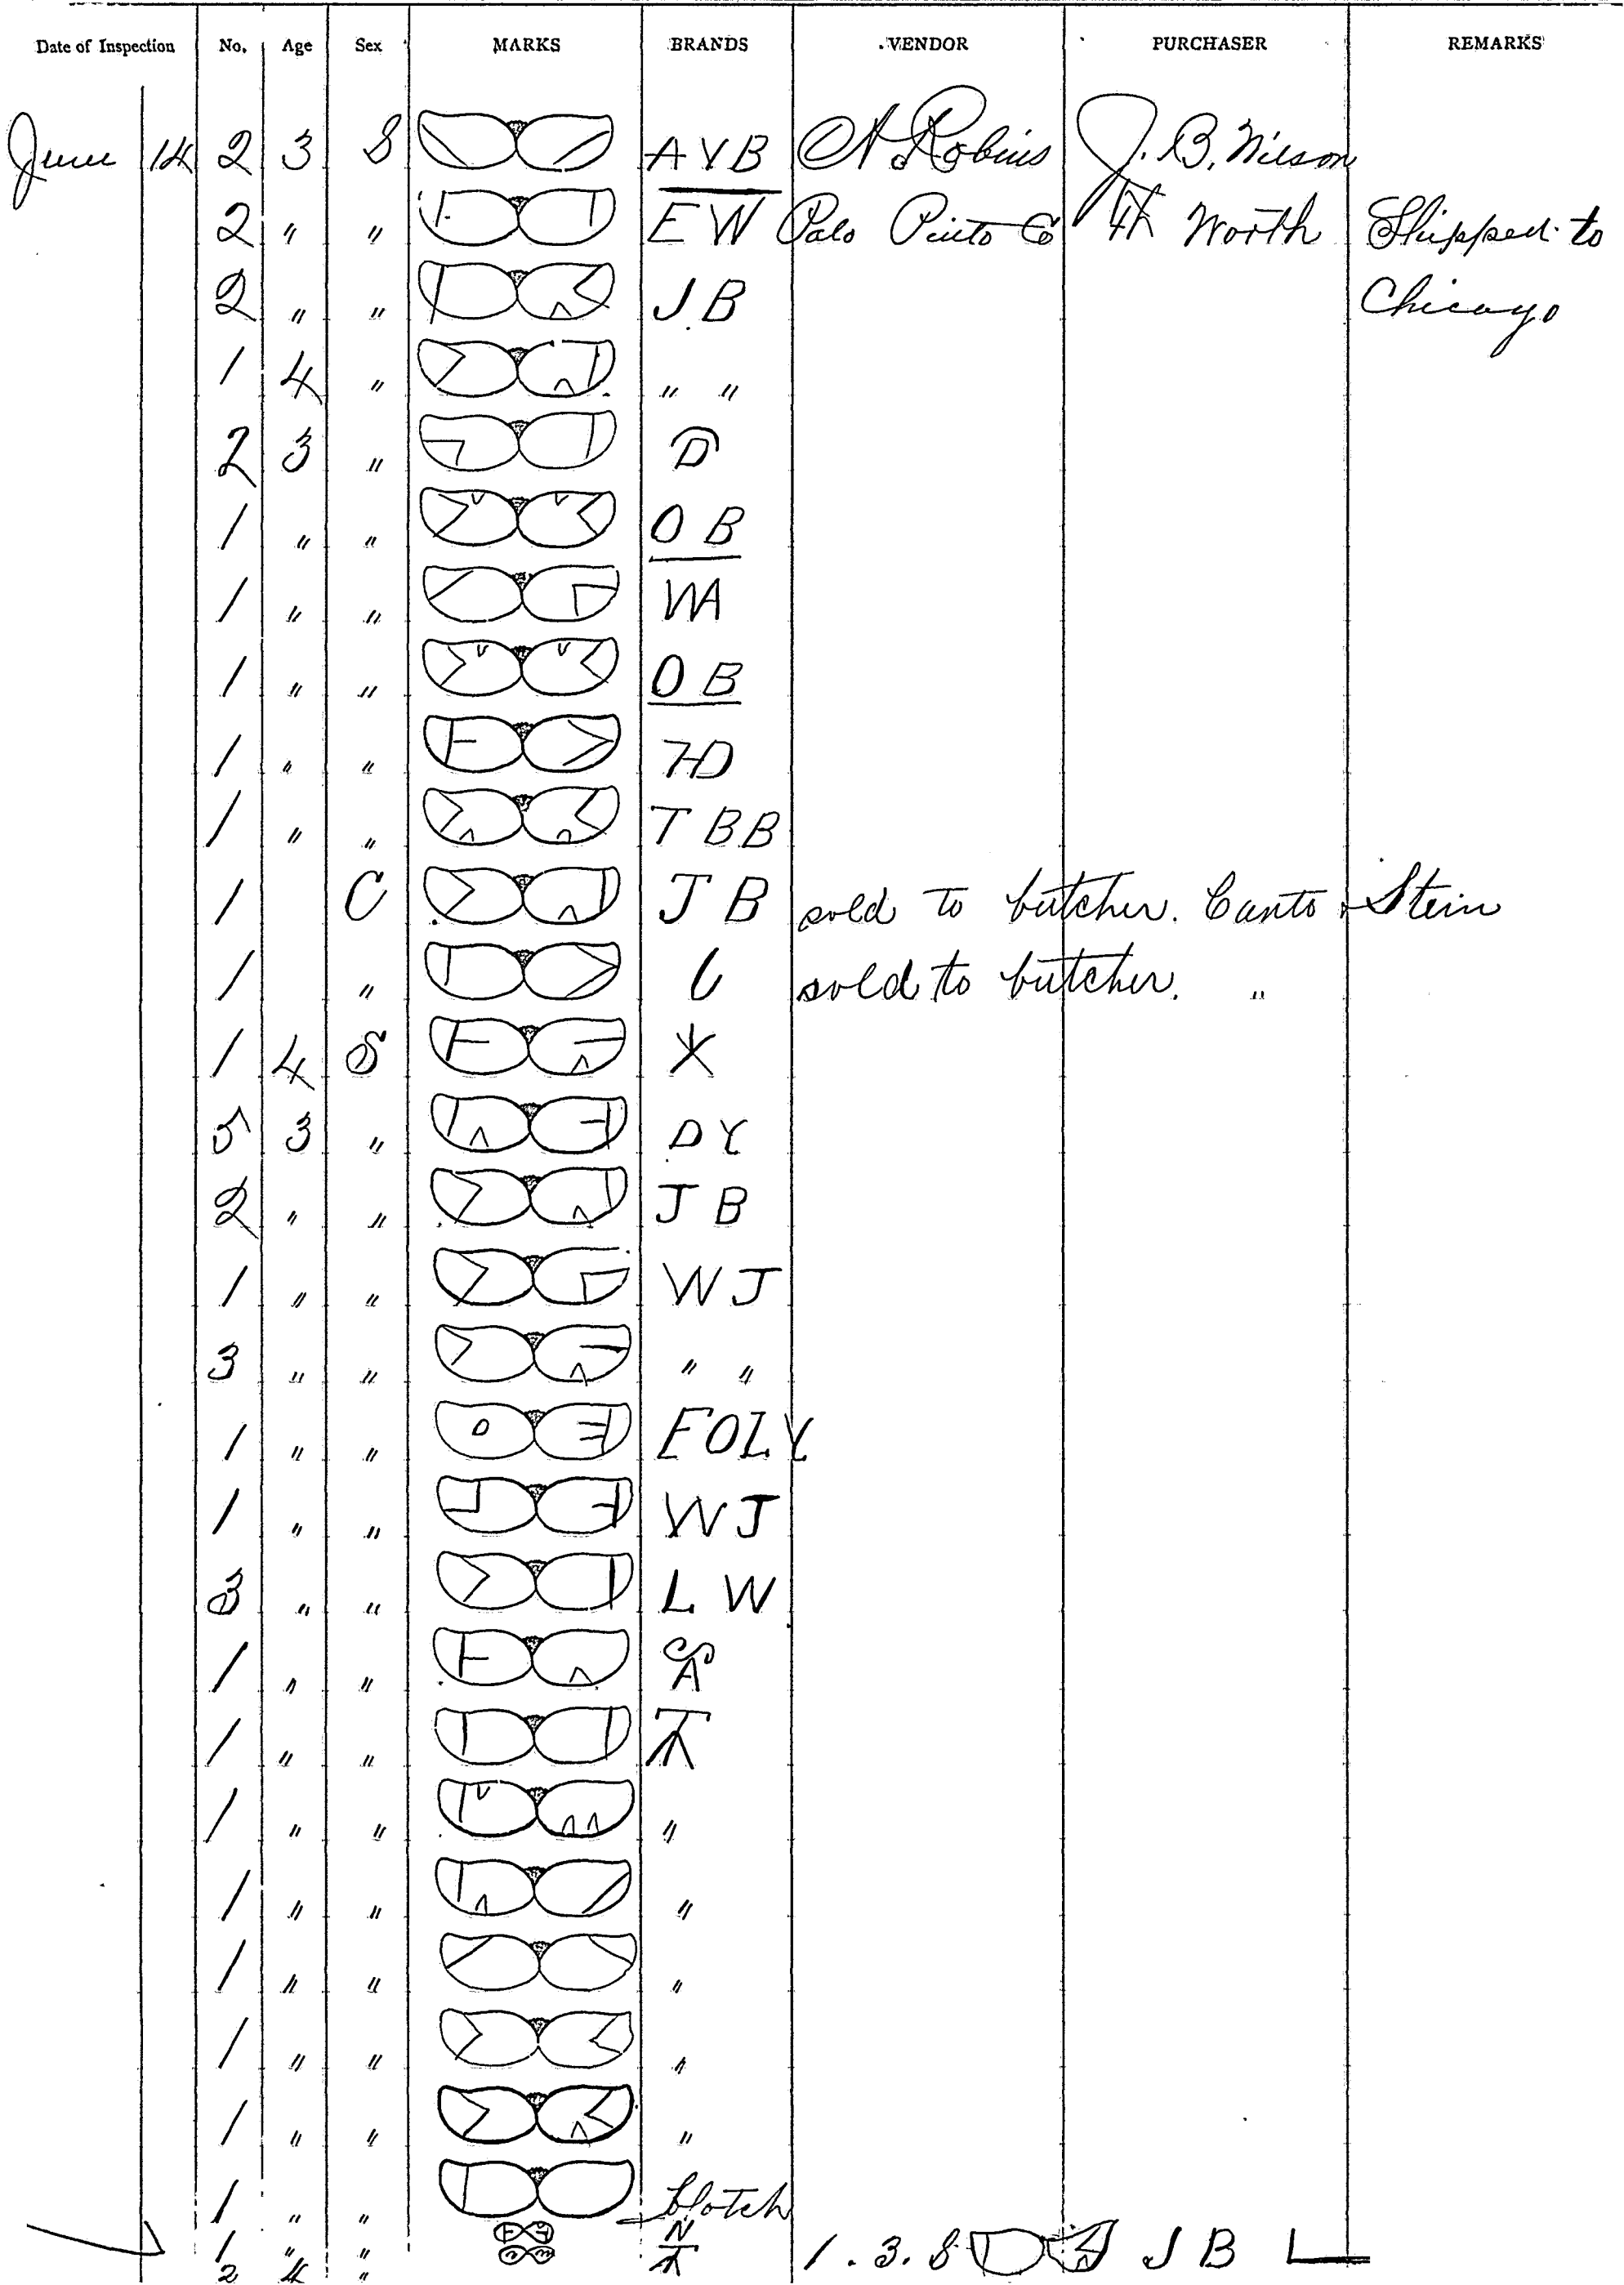 Date of Inspection No. Age Sex MARKS BRANDS VENDOR PURCHASER REMARKS
June 14 2 3 S A Y B A Robins J. B. Wilson
2 " " E W Palo Pinto Co Ft Worth Shipped to
2 " " J B Chicago
1 4 " " "
2 3 " D
1 " " O B
1 " " WA
1 " " O B
1 " " 7D
1 " " T B B
1 C J B sold to butcher. Canto & Stein
1 " sold to butcher. "
1 4 S X
5 3 " D Y
2 " " J B
1 " " W J
3 " " " "
1 " " FOLY
1 " " W J
3 " " L W
1 " " S A
1 " "
1 " " "
1 " " "
1 " " "
1 " " "
1 " " "
1 " " blotch
1 " " N 1 . 3 . S J B L
2 4 "